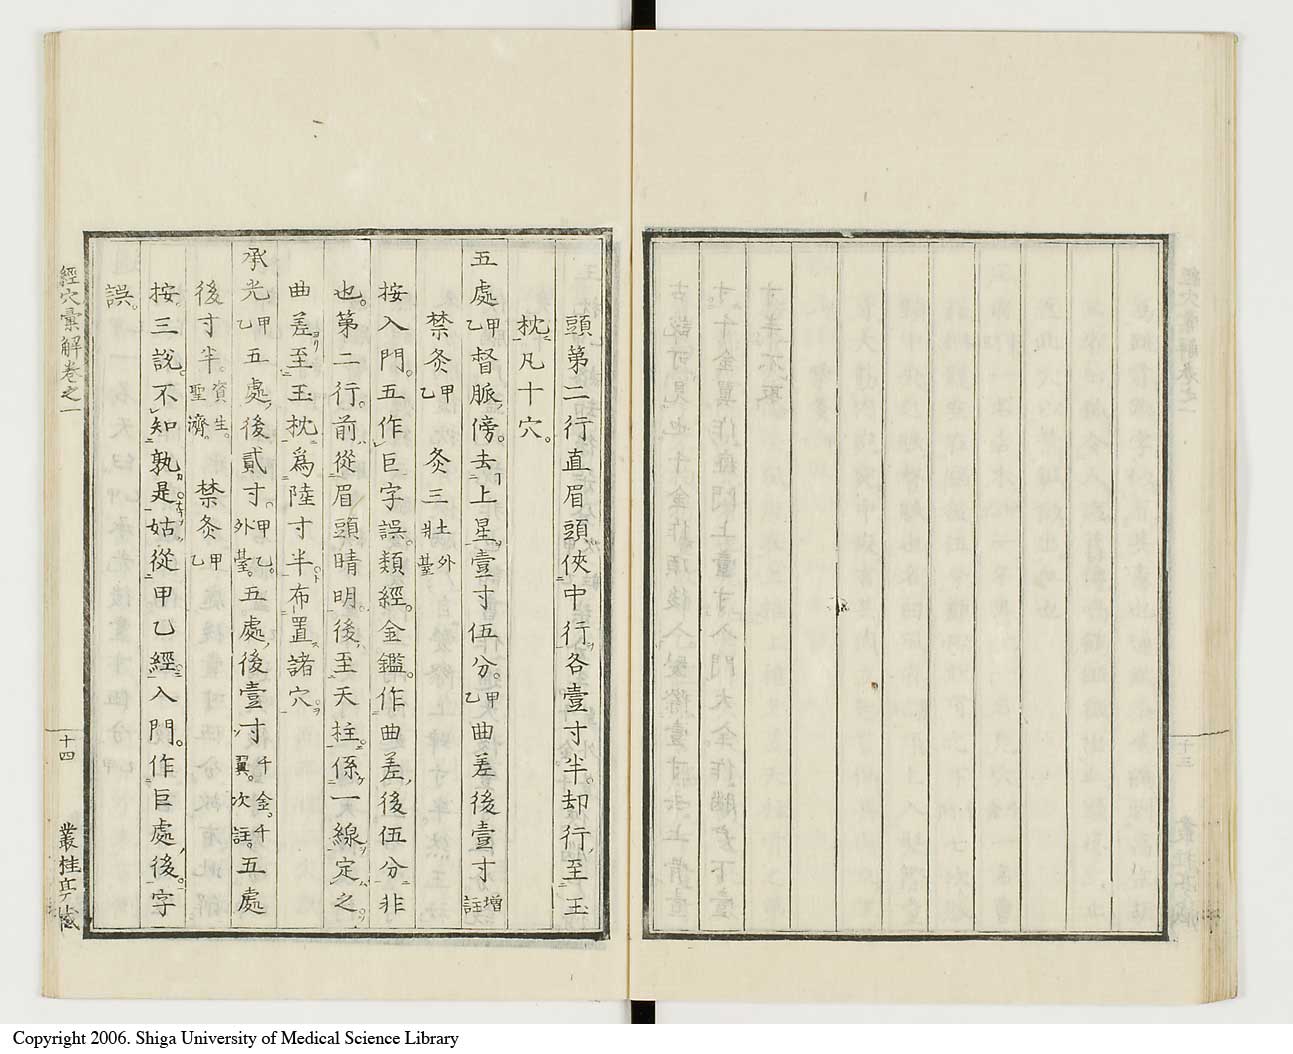 頭第二行直眉頭俠中行各壹寸半却行至玉
枕凡十穴
五處甲乙督脈傍去上星壹寸伍分甲乙曲差後壹寸增註
禁灸甲乙 灸三壯外臺
按入門五作巨字誤類經金鑑作曲差後伍分非
也第二行前從眉頭晴明後至天柱係一線定之
曲差ヨリ至玉枕爲陸寸半布置諸穴
承光甲乙五處後貳寸甲乙外臺五處後壹寸千金千翼次註五處
後寸半資生聖濟 禁灸甲乙
按三說不知孰是姑從甲乙經入門作巨處後字
誤
經穴彙解卷之一
十四
叢桂亭藏
十三
Copyright 2006. Shiga University of Medical Science Library